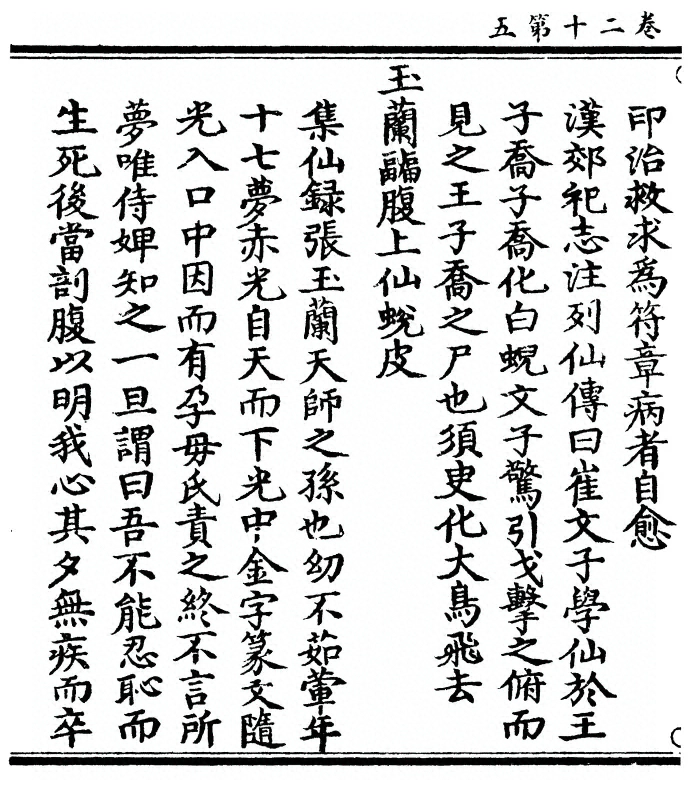 卷二十第五
印治救求為符章病者自愈
漢郊祀志注列仙傳曰崔文子學仙於王
子喬子喬化白蜺文子驚引戈擊之俯而
見之王子喬之尸也須吏化大鳥飛去
玉蘭疈腹上仙蛻皮
集仙録張玉蘭天師之孫也幼不茹葷年
十七夢赤光自天而下光中金字篆文隨
光入口中因而有孕母氏責之終不言所
夢唯侍婢知之一旦謂曰吾不能忍恥而
生死後當剖腹以明我心其夕無疾而卒